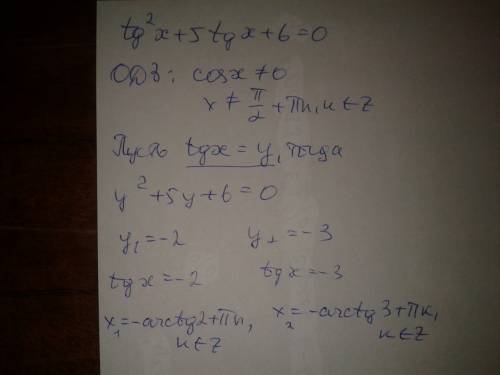 tg²x+5tgx+6=0
ОДЗ: cosx≠0
x≠π/2+πn, n∈Z
Пусть tgx=y, тогда
y²+5y+6=0
y₁=-2 y₂=-3
tgx=-2 tgx=-3
x₁=-arctg2+πn, x₂=-arctg3+πk,
n∈Z k∈Z